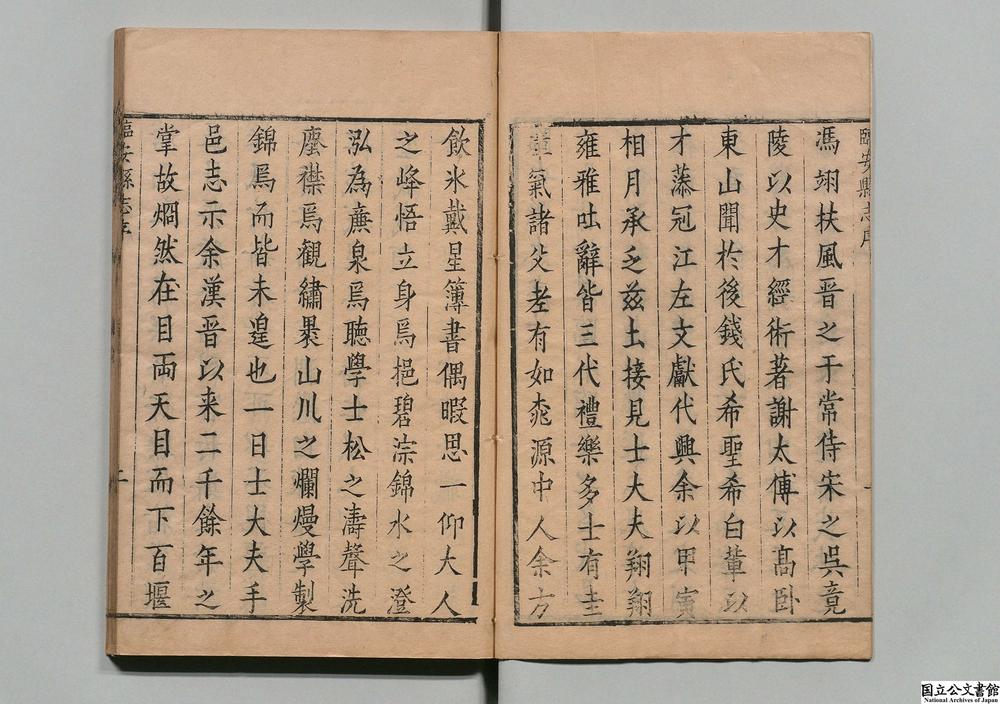 臨安縣志序
馮翊扶風晉之干常侍宋之吳竟
陵以史才經術著謝太傅以高卧
東山聞於後錢氏希聖希白輩以
才藻冠江左文獻代興余以甲寅
相月承乏兹土接見士大夫翔翔
雍雅吐辭皆三代禮樂多士有圭
璋氣諸父老有如桃源中人余方
飲氷戴星簿書偶暇思一仰大人
之峰悟立身焉挹碧淙錦水之澄
泓為亷泉焉聴學士松之濤聲洗
塵襟焉觀繡㠥山川之爛熳學製
錦焉而皆未遑也一日士大夫手
邑志示余漢晉以来二千餘年之
掌故烱然在目両天目而下百堰
臨安縣志序
二
国立公文書館
National Archives of Japan